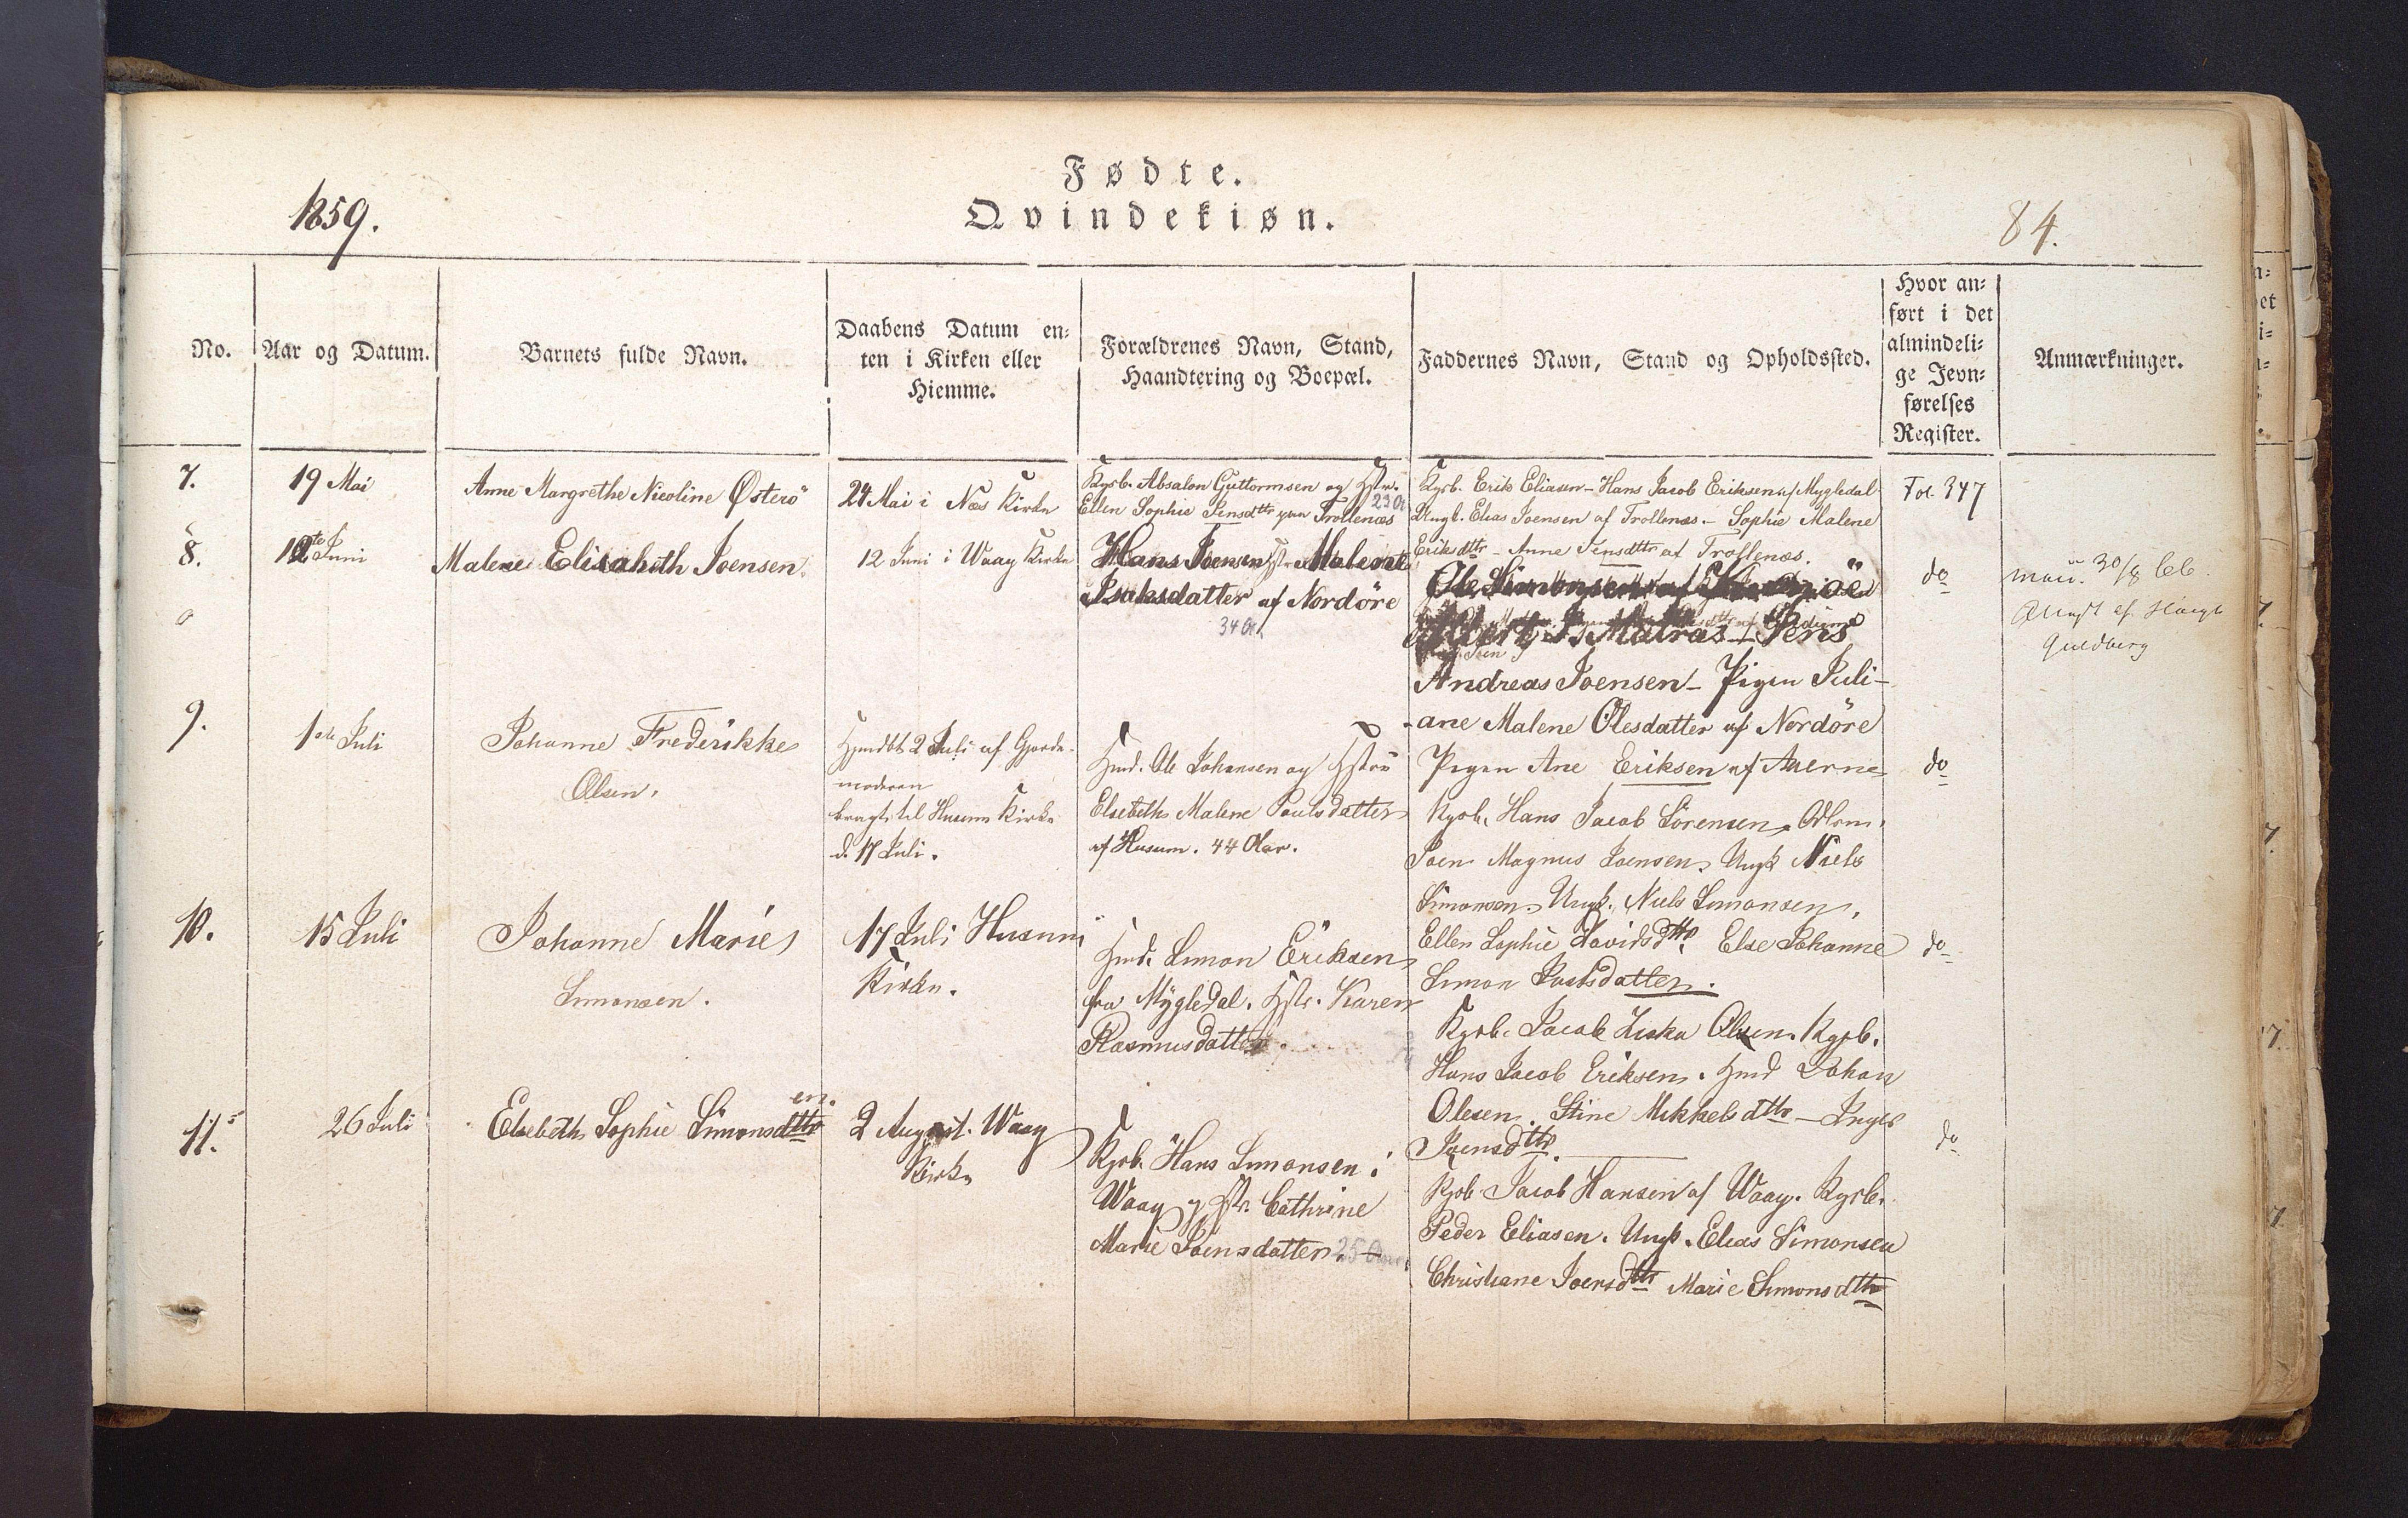 Fødte.
Qvindekiøn.
1859.
84.
No.
Aar og Datum.
Barnets fulde Navn.
Daabens Datum en-
ten i Kirken eller
Hiemme.
Forældrenes Navn, Stand,
Haandtering og Boepæl.
Faddernes Navn, Stand og Opholdssted.
Hvor an-
ført i det
almindeli-
ge Jevn-
førelses
Register.
Anmærkninger.
7.
19 Mai
Anne Margrethe Nicoline Østerö
24 Mai i Næs Kirke
Kgsb. Absalon Guttormsen og Hstr.
Ellen Sophie Jensdttr paa Trollenæs
23 A
Kgsb. Erik Eliasen - Hans Jacob Eriksen af Mygledal
Ungk. Elias Joensen af Trollenæs. - Sophie Malene
Eriksdttr - Anne Jensdttr af Trollenæs.
Fol. 347
8.
Juni
Malene Elisabeth Joensen.
12 Juni i Waag Kirke
Hans Joensen Hstr. Malene
Isaksdatter af Nordöre
34 A
Ole Simonsen af
Matras - Jens
Andreas Joensen - Pigen Juli-
ane Malene Olesdatter af Nordöre
do
30/8
Guldberg
9.
1ste Juli
Johanne Frederikke
Olsen.
Hjmdbt 2 Juli af Gjorde-
moderen
bragt til Husum Kirke
d. 17 Juli.
Hmd. Ole Johansen og Hstrü
Elsebeth Malene Poulsdatter
af Husum. 44 Aar.
Pigen Ane Eriksen af
Kgsb. Hans Jacob Sörensen,
Joen Magnus Joensen, Ungk Niels
Simonsen. Ungk. Niels Simonsen,
Ellen Sophie Davidsdttr Else Johanne
Simon datter.
do
10.
15 Juli
Johanne Marie
Simonsen.
17 Juli Husum
Kirke.
Hmd. Simon Eriksen
fra Mygledal. Hstr. Karen
Rasmusdatter.
Kgsb. Jacob Ziska Olsen. Kgsb.
Hans Jacob Eriksen. Hmd Johan
Olesen. Stine Mikkelsdttr - Inger
Joensdttr.
do
11.
26 Juli
Elsebeth Sophie Simonsdttr
en.
2 August. Waag
Kirke
Kgsb. Hans Simonsen i
Waag og Hstr. Cathrine
Marie Joensdatter. 25 Aar
Kgsb Jacob Hansen af Waag. Kgsb.
Peder Eliasen. Ungk. Elias Simonsen
Christiane Joensdttr Marie Simonsdttr
do